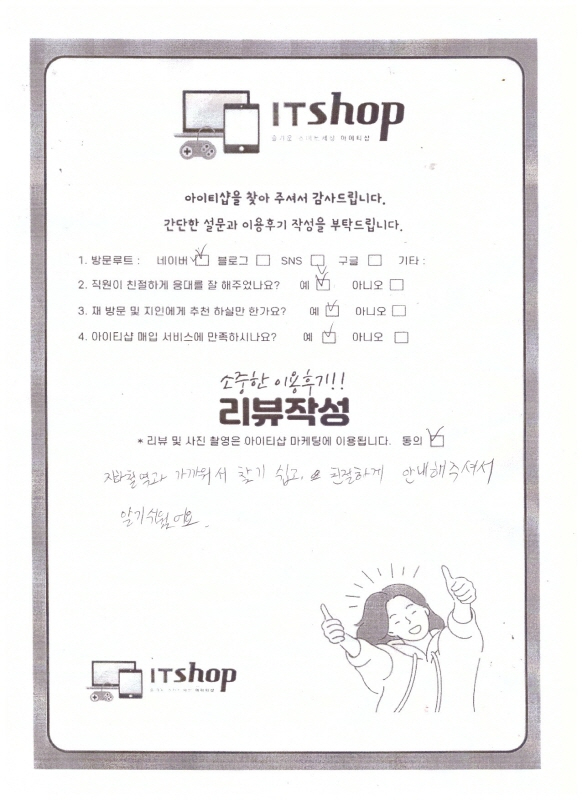 ITshop
아이티샵을 찾아 주셔서 감사드립니다.
간단한 설문과 이용후기 작성을 부탁드립니다.
1. 방문루트 : 네이버 블로그 SNS 구글 기타 :
2. 직원이 친절하게 응대를 잘 해주었나요? 예 아니오
3. 재 방문 및 지인에게 추천 하실만 한가요? 예 아니오
4. 아이티샵 매입 서비스에 만족하시나요? 예 아니오
소중한 이용후기!!
리뷰작성
* 리뷰 및 사진 촬영은 아이티샵 마케팅에 이용됩니다. 동의
가까워서 찾기 쉽고, 친절하게 안내해주셔서
알기 쉬웠어요.
ITshop